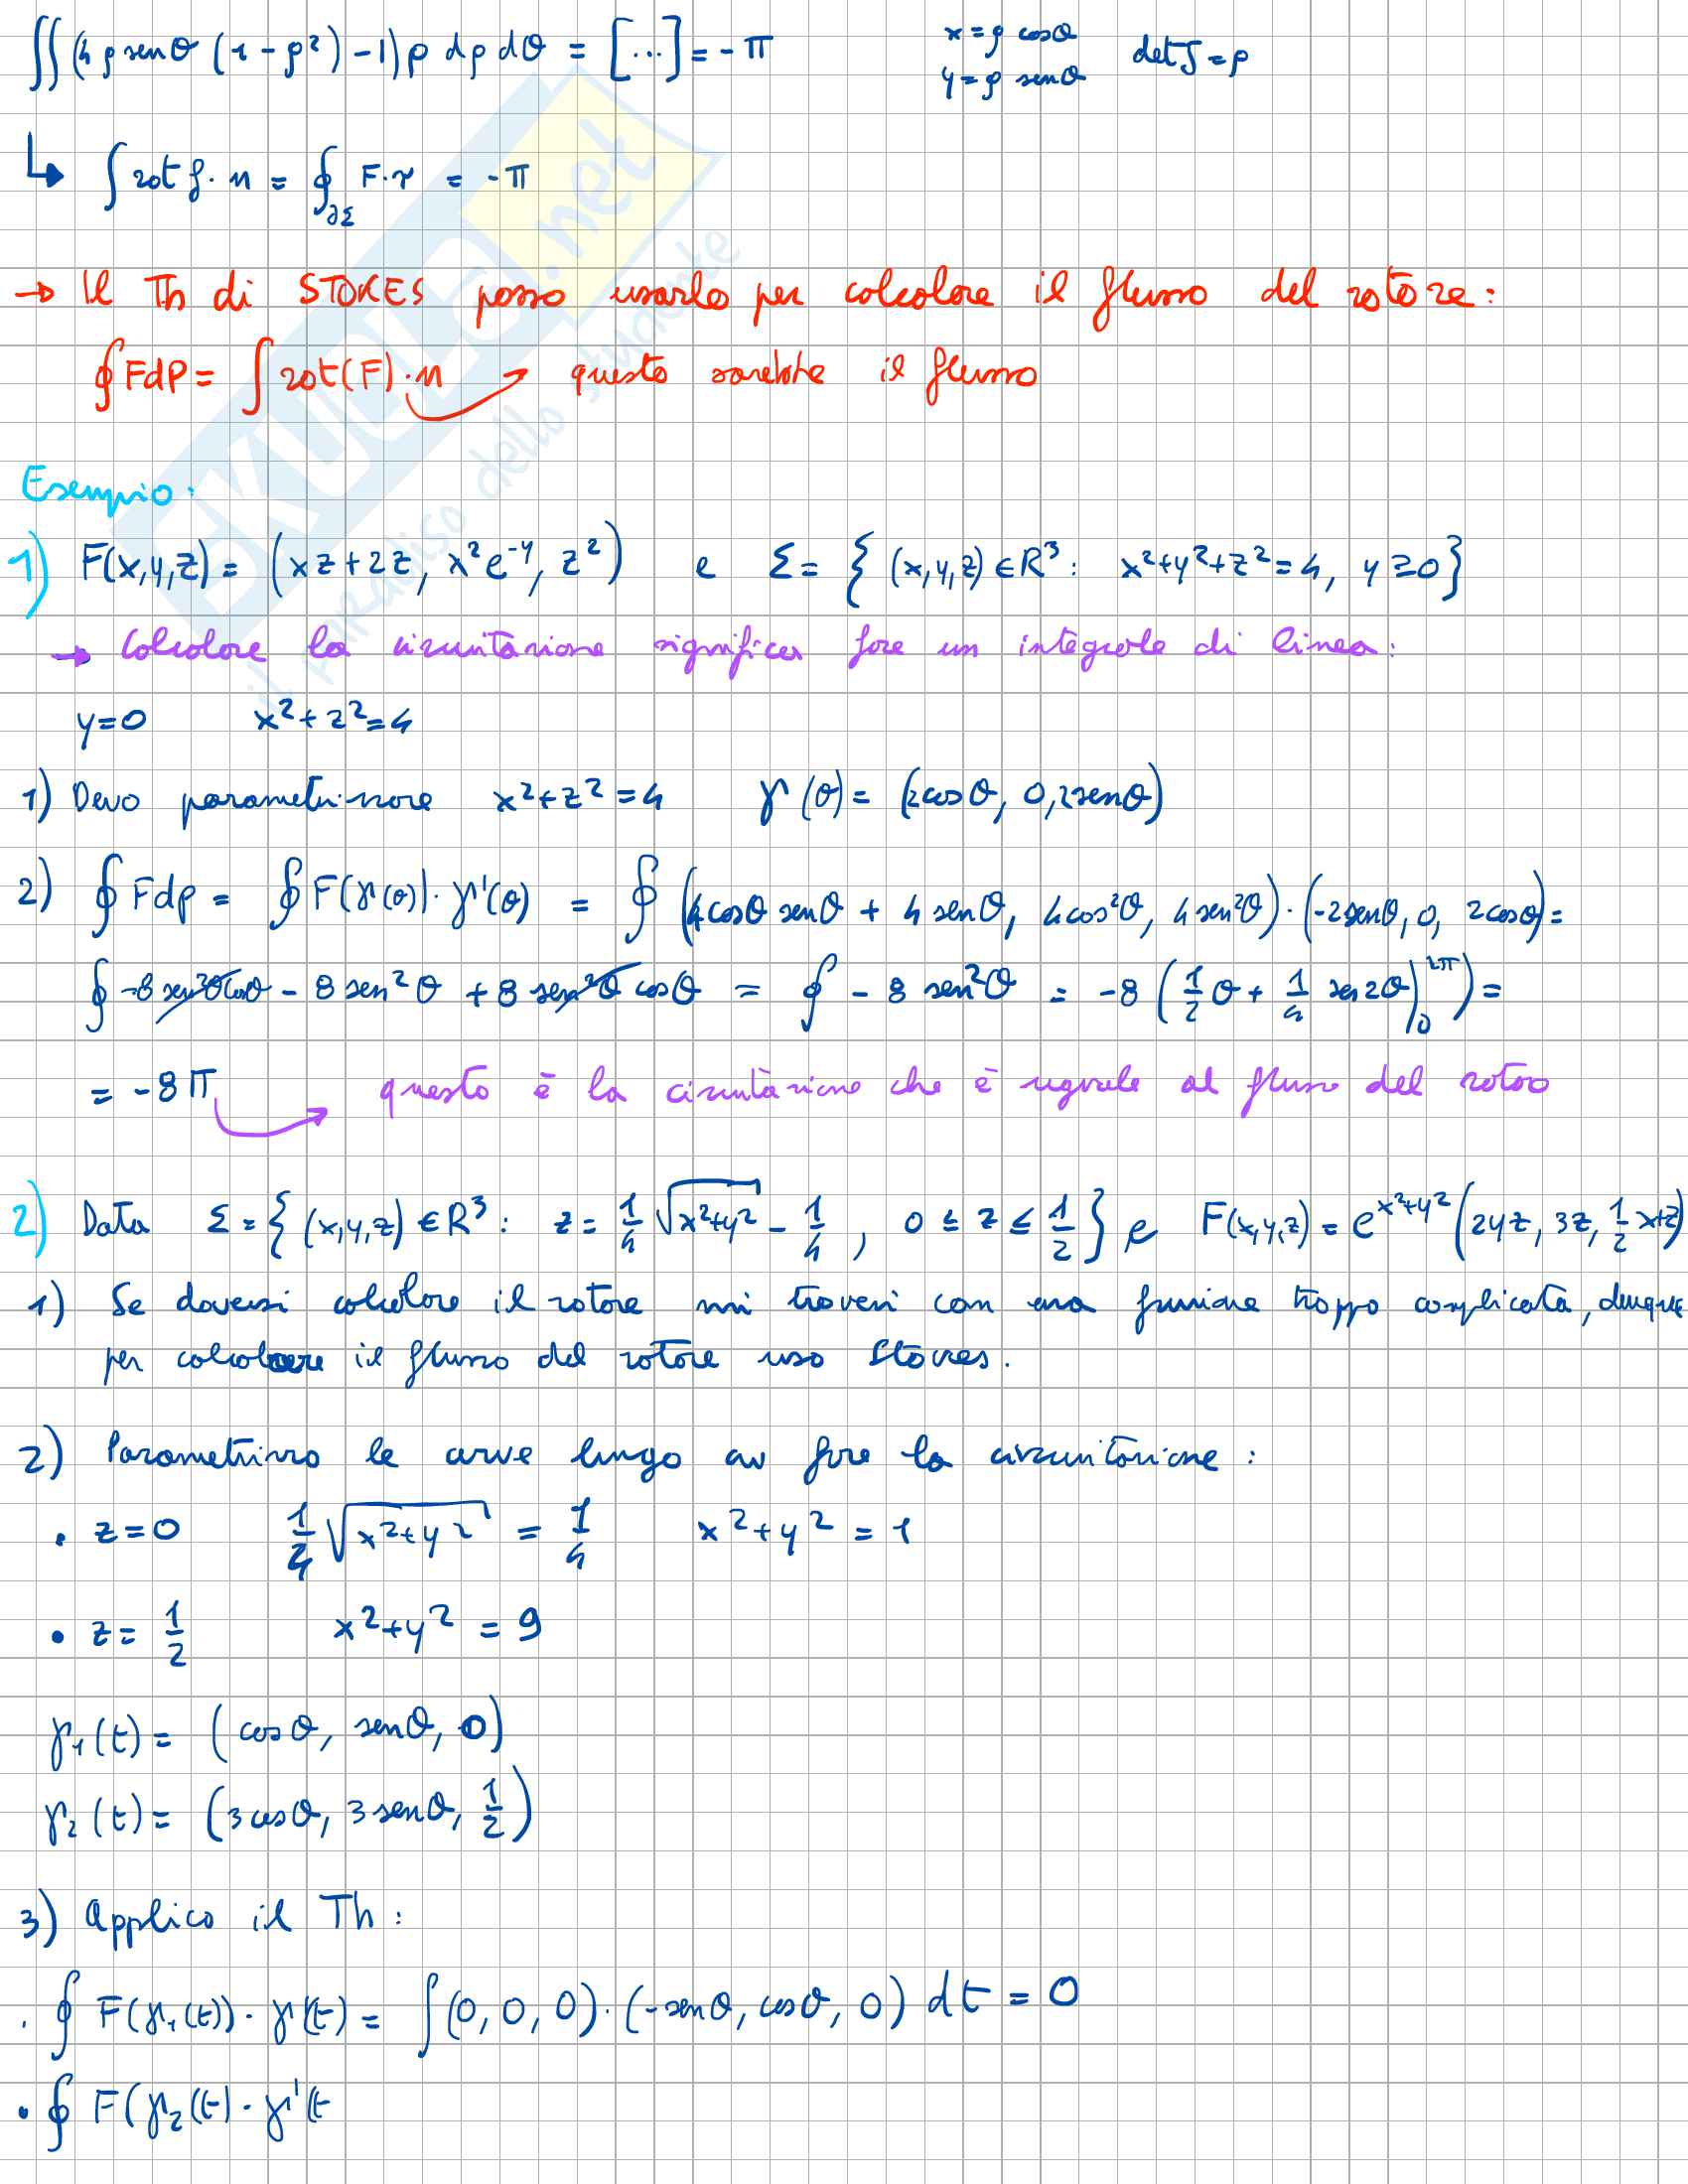 ∬ (4ρ senθ (1-ρ²) -1) ρ dρ dθ = [...] = -π    x = ρ cosθ
y = ρ senθ    det J = ρ
↳ ∫ rot f · n = ∮_∂Σ F·τ = -π
→ Il Th di STOKES posso usarlo per calcolare il flusso del rotore:
∮ F dP = ∫ rot(F)·n → questo sarebbe il flusso
Esempio:
1) F(x,y,z) = (xz+2z, x²e^-y, z²) e Σ = {(x,y,z) ∈ R³: x²+y²+z²=4, y≥0}
→ Calcolare la circuitazione significa fare un integrale di linea:
y=0    x²+z²=4
1) Devo parametrizzare x²+z²=4    γ(θ) = (2cosθ, 0, 2senθ)
2) ∮ F dp = ∮ F(γ(θ))·γ'(θ) = ∮ (4cosθ senθ + 4 senθ, 4cos²θ, 4sen²θ)·(-2senθ, 0, 2cosθ) =
∮ -8 sen²θ cosθ - 8 sen²θ + 8 sen²θ cosθ = ∮ - 8 sen²θ = -8 (1/2 θ + 1/4 sen2θ |_0^2π) =
= -8π → questo è la circuitazione che è uguale al flusso del rotore
2) Data Σ = {(x,y,z) ∈ R³: z = 1/4 √(x²+y²) - 1/4, 0 ≤ z ≤ 1/2} e F(x,y,z) = e^(x²+y²) (2yz, 3z, 1/2 x+z)
1) Se dovessi calcolare il rotore mi troverei con una funzione troppo complicata, dunque
per calcolare il flusso del rotore uso Stokes.
2) Parametrizzo le curve lungo cui fare la circuitazione:
• z=0    1/4 √(x²+y²) = 1/4    x²+y² = 1
• z = 1/2    x²+y² = 9
γ₁(t) = (cosθ, senθ, 0)
γ₂(t) = (3cosθ, 3senθ, 1/2)
3) Applico il Th:
• ∮ F(γ₁(t))·γ'(t) = ∫ (0, 0, 0)·(-senθ, cosθ, 0) dt = 0
• ∮ F(γ₂(t)·γ'(t
SKUOLA.net
il paradiso dello studente